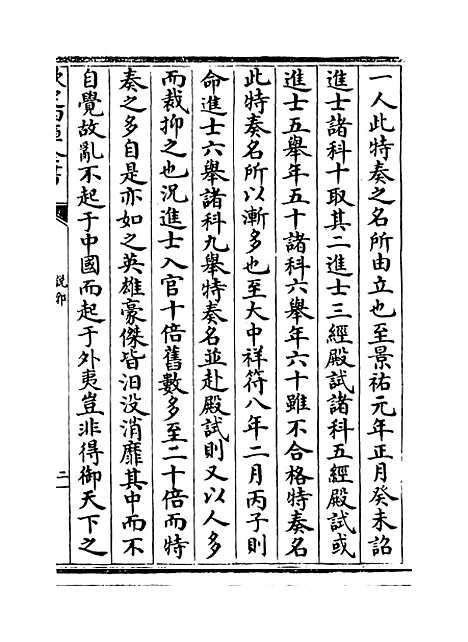 一人此特奏之名所由立也至景祐元年正月癸未詔
進士諸科十取其二進士三經殿試諸科五經殿試或
進士五舉年五十諸科六舉年六十雖不合格特奏名
此特奏名所以漸多也至大中祥符八年二月丙子則
命進士六舉諸科九舉特奏名並赴殿試則又以人多
而裁抑之也況進士入官十倍舊數多至二十倍而特
奏之多自是亦如之英雄豪傑皆汨没消靡其中而不
自覺故亂不起于中國而起于外夷豈非得御天下之
說郛